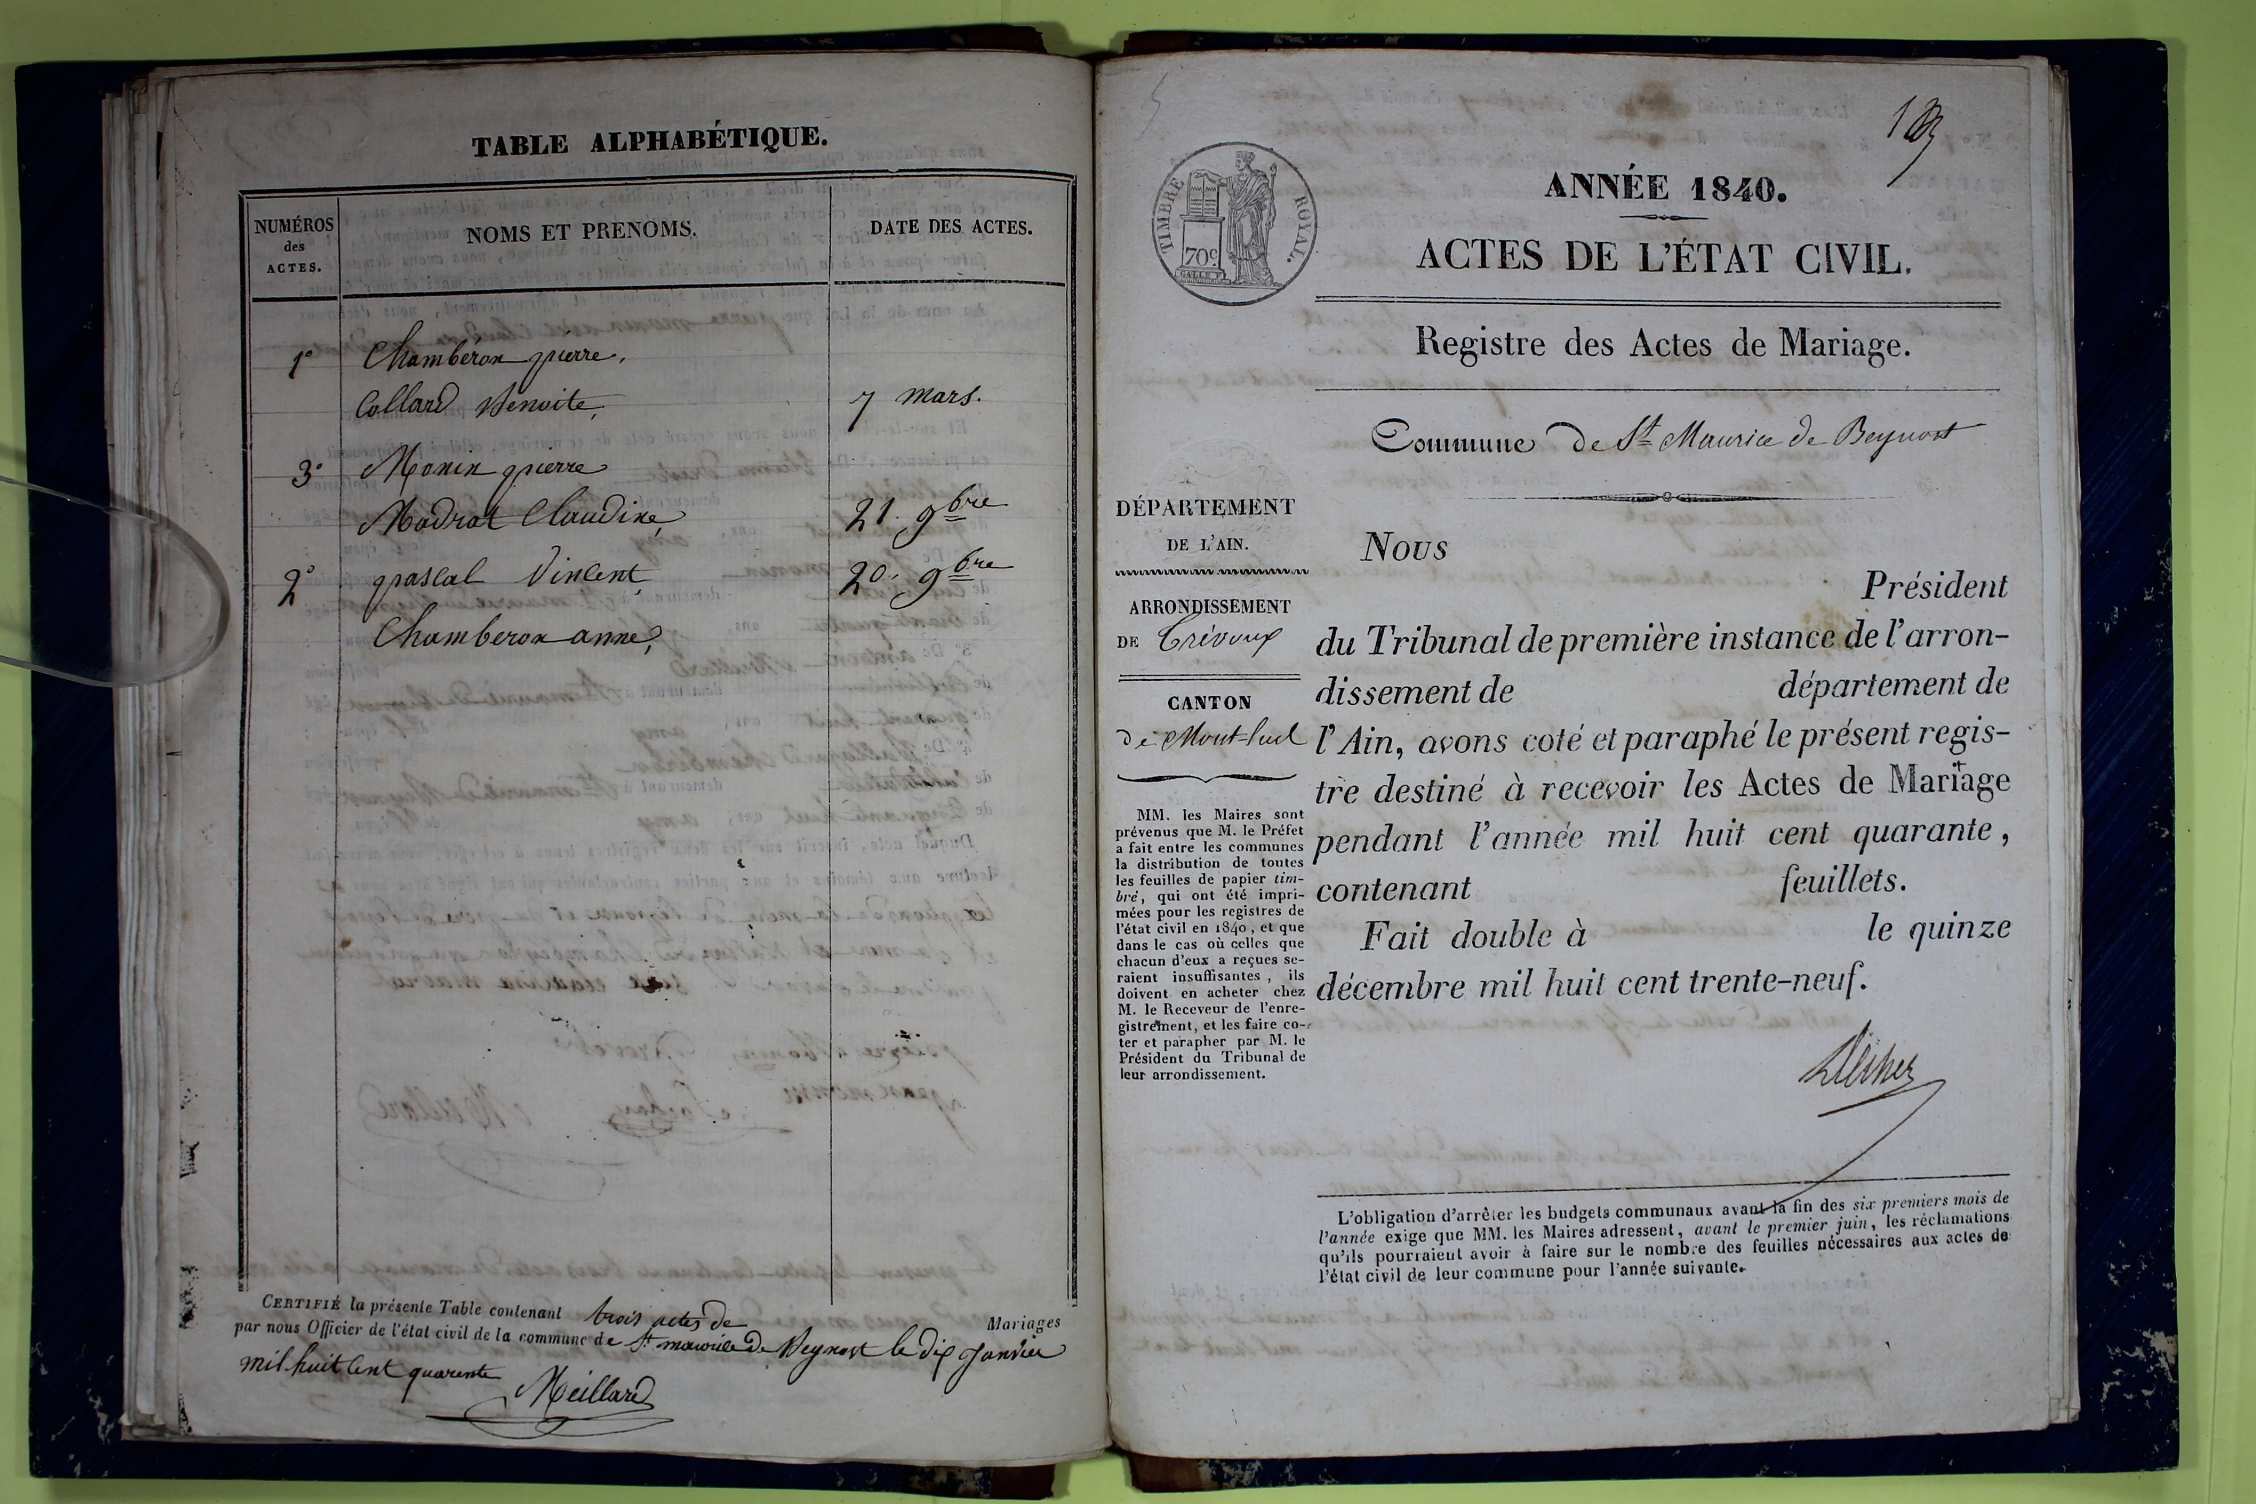 TABLE ALPHABÉTIQUE.
NUMÉROS
des
ACTES.
NOMS ET PRENOMS.
DATE DES ACTES.
1° Chambéron pierre,
Collard Benoite, 7 mars.
3° Monin pierre
Modrat Claudine, 21. 9bre
2° pascal Vincent, 20. 9bre
Chamberon anne,
CERTIFIÉ la présente Table contenant trois actes de Mariages
par nous Officier de l'état civil de la commune de St maurice de Beynost le dix Janvier
mil huit cent quarente
Meillard
TIMBRE ROYAL.
70c
ANNÉE 1840.
ACTES DE L'ÉTAT CIVIL.
Registre des Actes de Mariage.
Commune de St Maurice de Beynost
DÉPARTEMENT
DE L'AIN.
ARRONDISSEMENT
DE Trévoux
CANTON
de Mont-luel
MM. les Maires sont
prévenus que M. le Préfet
a fait entre les communes
la distribution de toutes
les feuilles de papier tim-
bré, qui ont été impri-
mées pour les registres de
l'état civil en 1840, et que
dans le cas où celles que
chacun d'eux a reçues se-
raient insuffisantes, ils
doivent en acheter chez
M. le Receveur de l'enre-
gistrement, et les faire co-
ter et parapher par M. le
Président du Tribunal de
leur arrondissement.
Nous
Président
du Tribunal de première instance de l'arron-
dissement de département de
l'Ain, avons coté et paraphé le présent regis-
tre destiné à recevoir les Actes de Mariage
pendant l'année mil huit cent quarante,
contenant feuillets.
Fait double à le quinze
décembre mil huit cent trente-neuf.
L'obligation d'arrêter les budgets communaux avant la fin des six premiers mois de
l'année exige que MM. les Maires adressent, avant le premier juin, les réclamations
qu'ils pourraient avoir à faire sur le nombre des feuilles nécessaires aux actes de
l'état civil de leur commune pour l'année suivante.